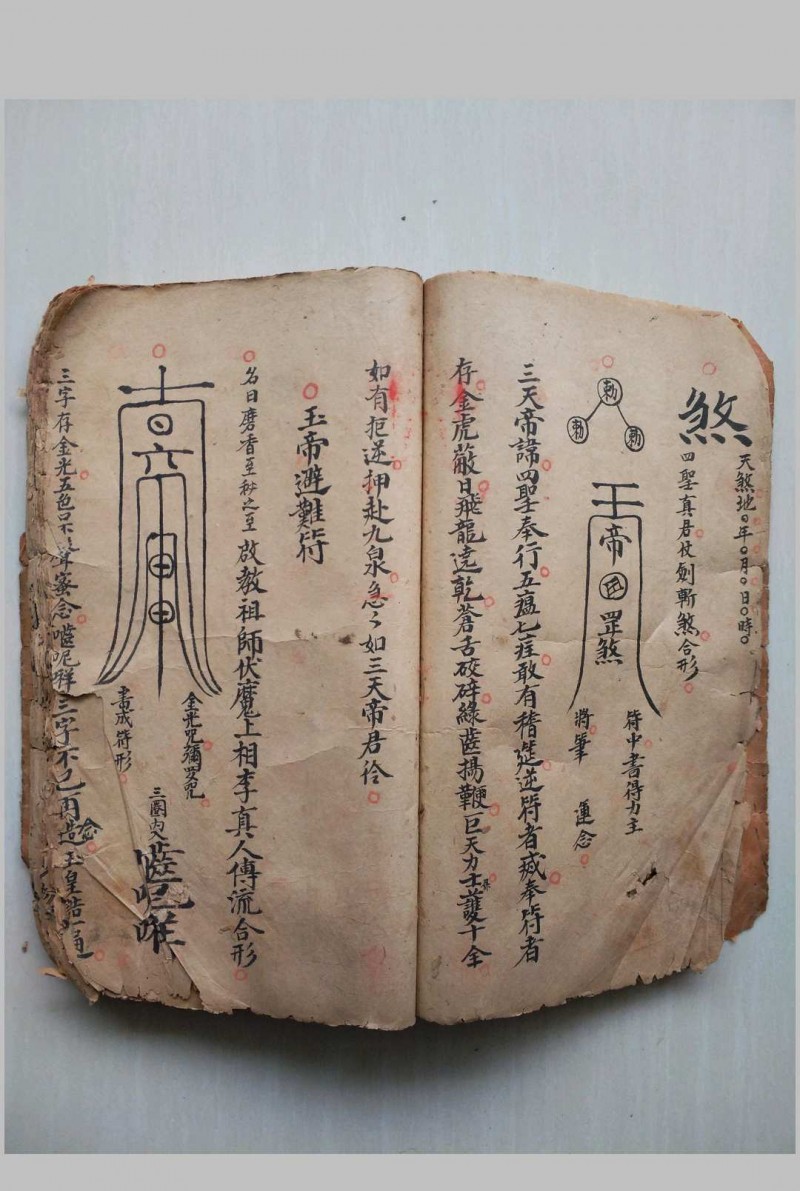 天煞地〇年〇月〇日〇時〇
煞
四聖真君仗劍斬煞合形
符中書得力主
將筆 運念
勅
勅 勅
王帝 罡煞
三天帝諱四聖奉行五瘟七疰敢有稽延逆符者滅奉符者
存金虎蔽日飛龍遶乾蒼舌咬碎緑齒揚鞭巨天力士護十全
如有拒逆押赴九泉急々如三天帝君令
玉帝避難符
名曰磨香至秒之至 啟教祖師伏魔上相李真人傳流合形
金光咒彌羅咒
三圈内入
書成符形
三字存金光五色只不 密念 三字不已再造玉皇誥一通
念